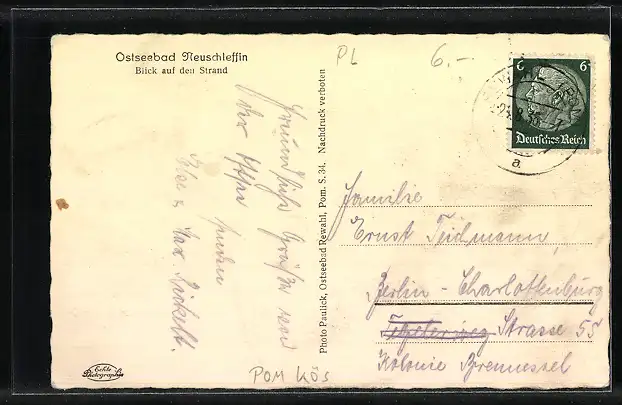 Ostseebad Neuschleffin
Blick auf den Strand
PL
6.-
6 6
21.8.35
a
Deutsches Reich
Freundliche Grüße von
der Ostsee
senden
Max Rickelt.
Photo Paulick, Ostseebad Rewahl, Pom. S. 34. Nachdruck verboten
Familie
Ernst Teichmann
Berlin - Charlottenburg
Strasse 55
Kolonie Brennessel
Echte
Photographie
POM KÖS